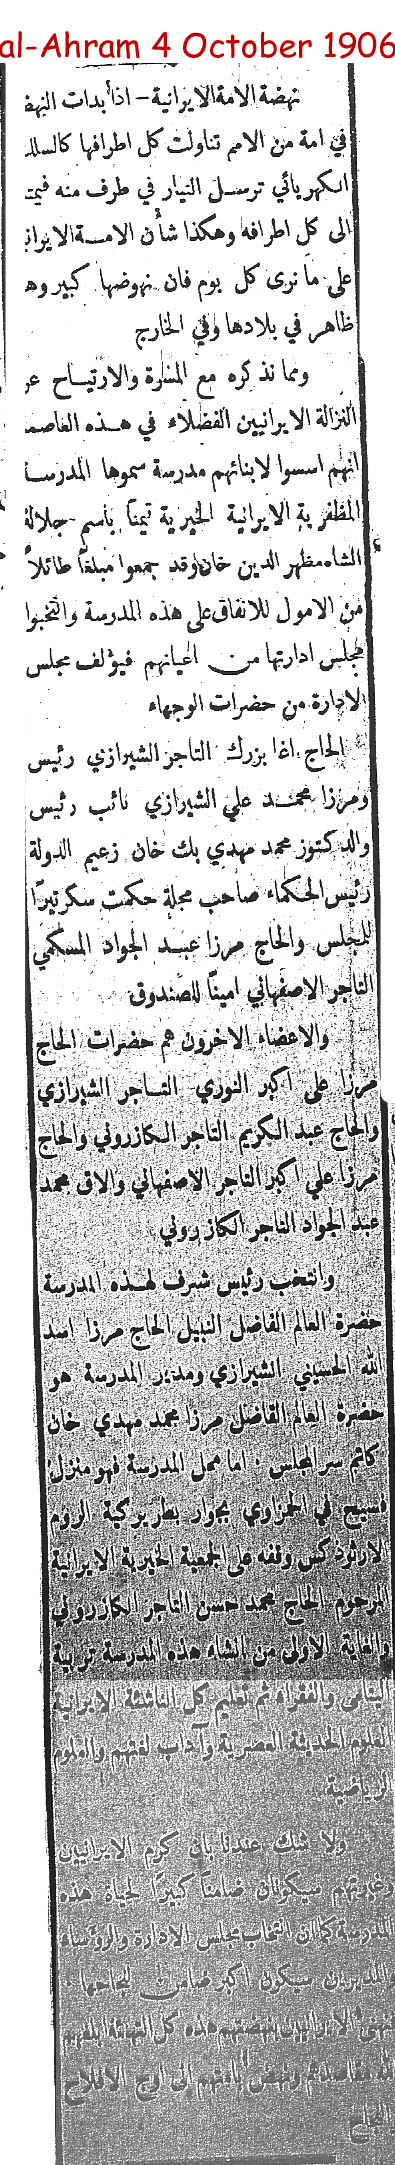 al-Ahram 4 October 1906
نهضة الامة الايرانية – اذا بدات النهض
في امة من الامم تناولت كل اطرافها كالسلك
الكهربائي ترسل التيار في طرف منه فيمتد
الى كل اطرافه وهكذا شأن الامة الايران
على ما نرى كل يوم فان نهوضها كبير وهو
ظاهر في بلادها وفي الخارج
ومما نذكره مع المسرة والارتياح عن
النزالة الايرانيين الفضلاء في هذه العاصمة
انهم اسسوا لابنائهم مدرسة سموها المدرسة
المظفرية الايرانية الخيرية تيمناً باسم جلالة
الشاه مظفر الدين خان وقد جمعوا مبلغاً طائلاً
من الامول للانفاق على هذه المدرسة وانتخبوا
مجلس ادارتها من اعيانهم فيؤلف مجلس
الادارة من حضرات الوجهاء
الحاج اغا بزرك التاجر الشيرازي رئيس
ومرزا محمد علي الشيرازي نائب رئيس
والدكتور محمد مهدي بك خان زعيم الدولة
رئيس الحكماء صاحب مجلة حكمت سكرتيراً
للمجلس والحاج مرزا عبد الجواد المسكي
التاجر الاصفهاني اميناً للصندوق
والاعضاء الاخرون هم حضرات الحاج
مرزا على اكبر النوري التاجر الشيرازي
والحاج عبد الكريم التاجر الكازروني والحاج
مرزا علي اكبر التاجر الاصفهاني والاق محمد
عبد الجواد التاجر الكازروني
وانتخب رئيس شرف لهذه المدرسة
حضرة العالم الفاضل النبيل الحاج مرزا اسد
الله الحسيني الشيرازي ومدير المدرسة هو
حضرة العالم الفاضل مرزا محمد مهدي خان
كاتم سر المجلس . اما محل المدرسة فهو منزل
فسيح في الحمزاوي بجوار بطريركية الروم
الارثوذكس وقفه على الجمعية الخيرية الايرانية
المرحوم الحاج محمد حسن التاجر الكازروني
والغاية الاولى من انشاء هذه المدرسة تربية
اليتامى والفقراء ثم تعليم كل الناشئة الايرانية
العلوم الحديثة العصرية وآداب لغتهم والعلوم
الرياضية
ولا شك عندنا بان كرم الايرانيين
وغيرتهم سيكونان ضامناً كبيراً لحياة هذه
المدرسة كما ان انتخاب مجلس الادارة والرؤساء
والمديرين سيكون اكبر ضامن لنجاحها .
الايرانيين بنهضتهم هذه كل التهنئة
مقاصدهم ونهض بامتهم الى اوج الافلاح
والنجاح